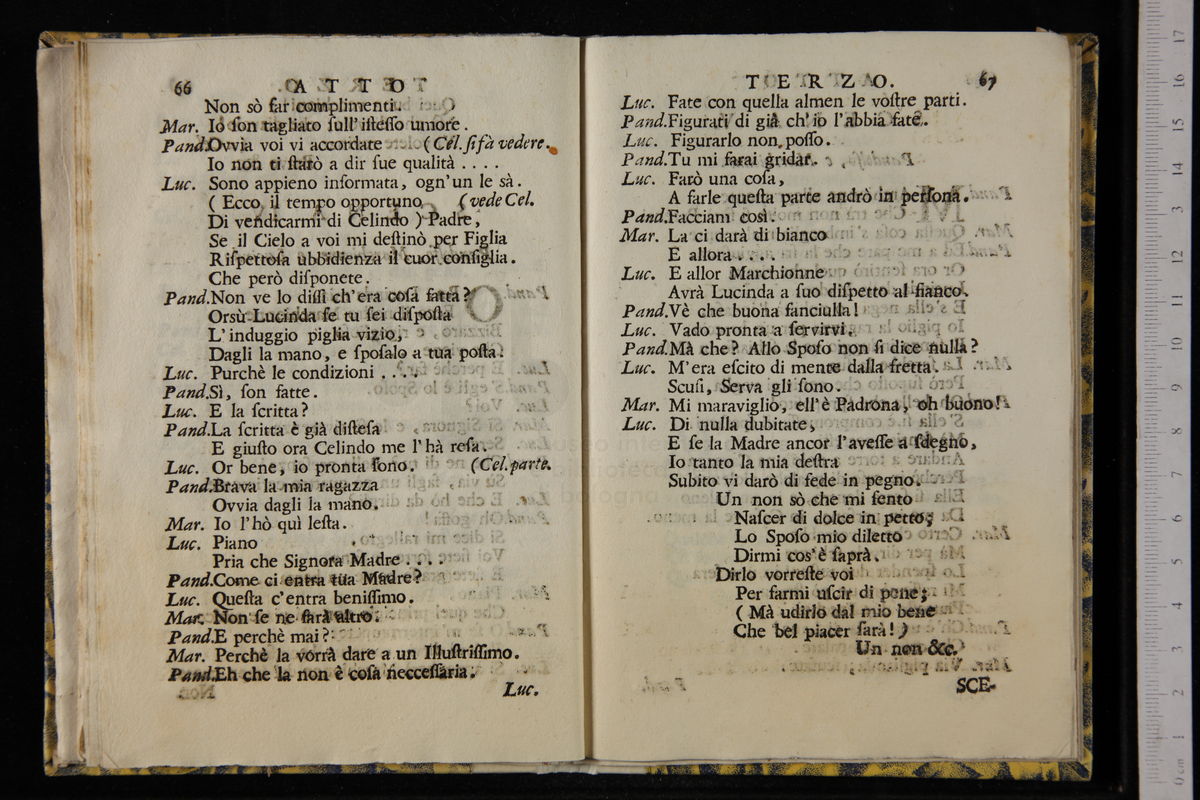 66
ATTO
Non sò far complimenti.
Mar. Io ſon tagliato full'iſteſſo umore.
Pand.Ovvia voi vi accordate (Cel. ſi fà vedere.
Io non ti ſtarò a dir ſue qualità ....
Luc. Sono appieno informata, ogn'un le sà.
( Ecco il tempo opportuno (vede Cel.
Di vendicarmi di Celindo ) Padre,
Se il Cielo a voi mi deſtinò per Figlia
Riſpettoſa ubbidienza il cuor conſiglia.
Che però diſponete.
Pand.Non ve lo diſſi ch'era coſa fatta?
Orsù Lucinda ſe tu ſei diſpoſta
L'induggio piglia vizio,
Dagli la mano, e ſpoſalo a tua poſta.
Luc. Purchè le condizioni ....
Pand.Sì, ſon fatte.
Luc. E la ſcritta?
Pand.La ſcritta è già diſteſa
E giuſto ora Celindo me l'hà reſa.
Luc. Or bene, io pronta ſono. (Cel. parte.
Pand.Brava la mia ragazza
Ovvia dagli la mano.
Mar. Io l'hò quì leſta.
Luc. Piano
Pria che Signora Madre ....
Pand.Come ci entra tua Madre?
Luc. Queſta c'entra beniſſimo.
Mar. Non ſe ne farà altro.
Pand.E perchè mai?
Mar. Perchè la vorrà dare a un Illuſtriſſimo.
Pand.Eh che la non è coſa necceſſaria.
Luc.
TERZO.
67
Luc. Fate con quella almen le voſtre parti.
Pand.Figurati di già ch'io l'abbia fate.
Luc. Figurarlo non poſſo.
Pand.Tu mi farai gridar.
Luc. Farò una coſa,
A farle queſta parte andrò in perſona.
Pand.Facciam così.
Mar. La ci darà di bianco
E allora ....
Luc. E allor Marchionne
Avrà Lucinda a ſuo diſpetto al fianco.
Pand.Vè che buona fanciulla!
Luc. Vado pronta a ſervirvi.
Pand.Mà che? Allo Spoſo non ſi dice nulla?
Luc. M'era eſcito di mente dalla fretta.
Scuſi, Serva gli ſono.
Mar. Mi maraviglio, ell'è Padrona, oh buono!
Luc. Di nulla dubitate,
E ſe la Madre ancor l'aveſſe a ſdegno,
Io tanto la mia deſtra
Subito vi darò di fede in pegno.
Un non sò che mi ſento
Naſcer di dolce in petto;
Lo Spoſo mio diletto
Dirmi cos'è ſaprà.
Dirlo vorreſte voi
Per farmi uſcir di pene;
( Mà udirlo dal mio bene
Che bel piacer ſarà! )
Un non &c.
SCE-